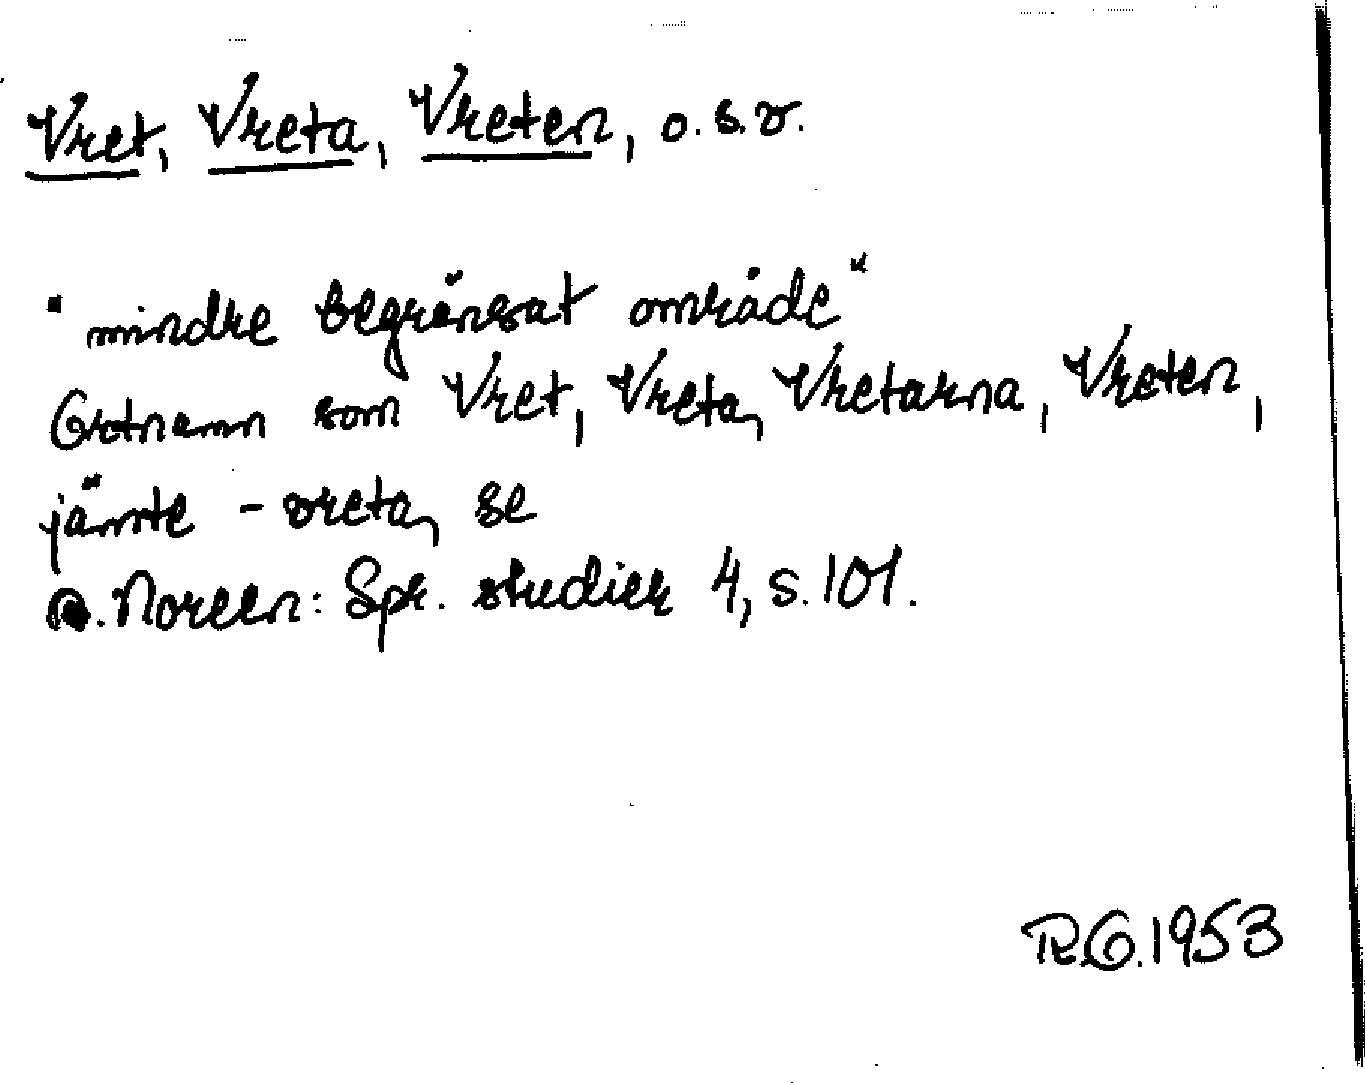 Vret, Vreta, Vreten, o.s.v.
"mindre begränsat område"
Ortnamn som Vret, Vreta, Vretarna, Vreten,
jämte -vreta, se
A. Noreen: Spr. studier 4, s. 101.
R.O. 1953